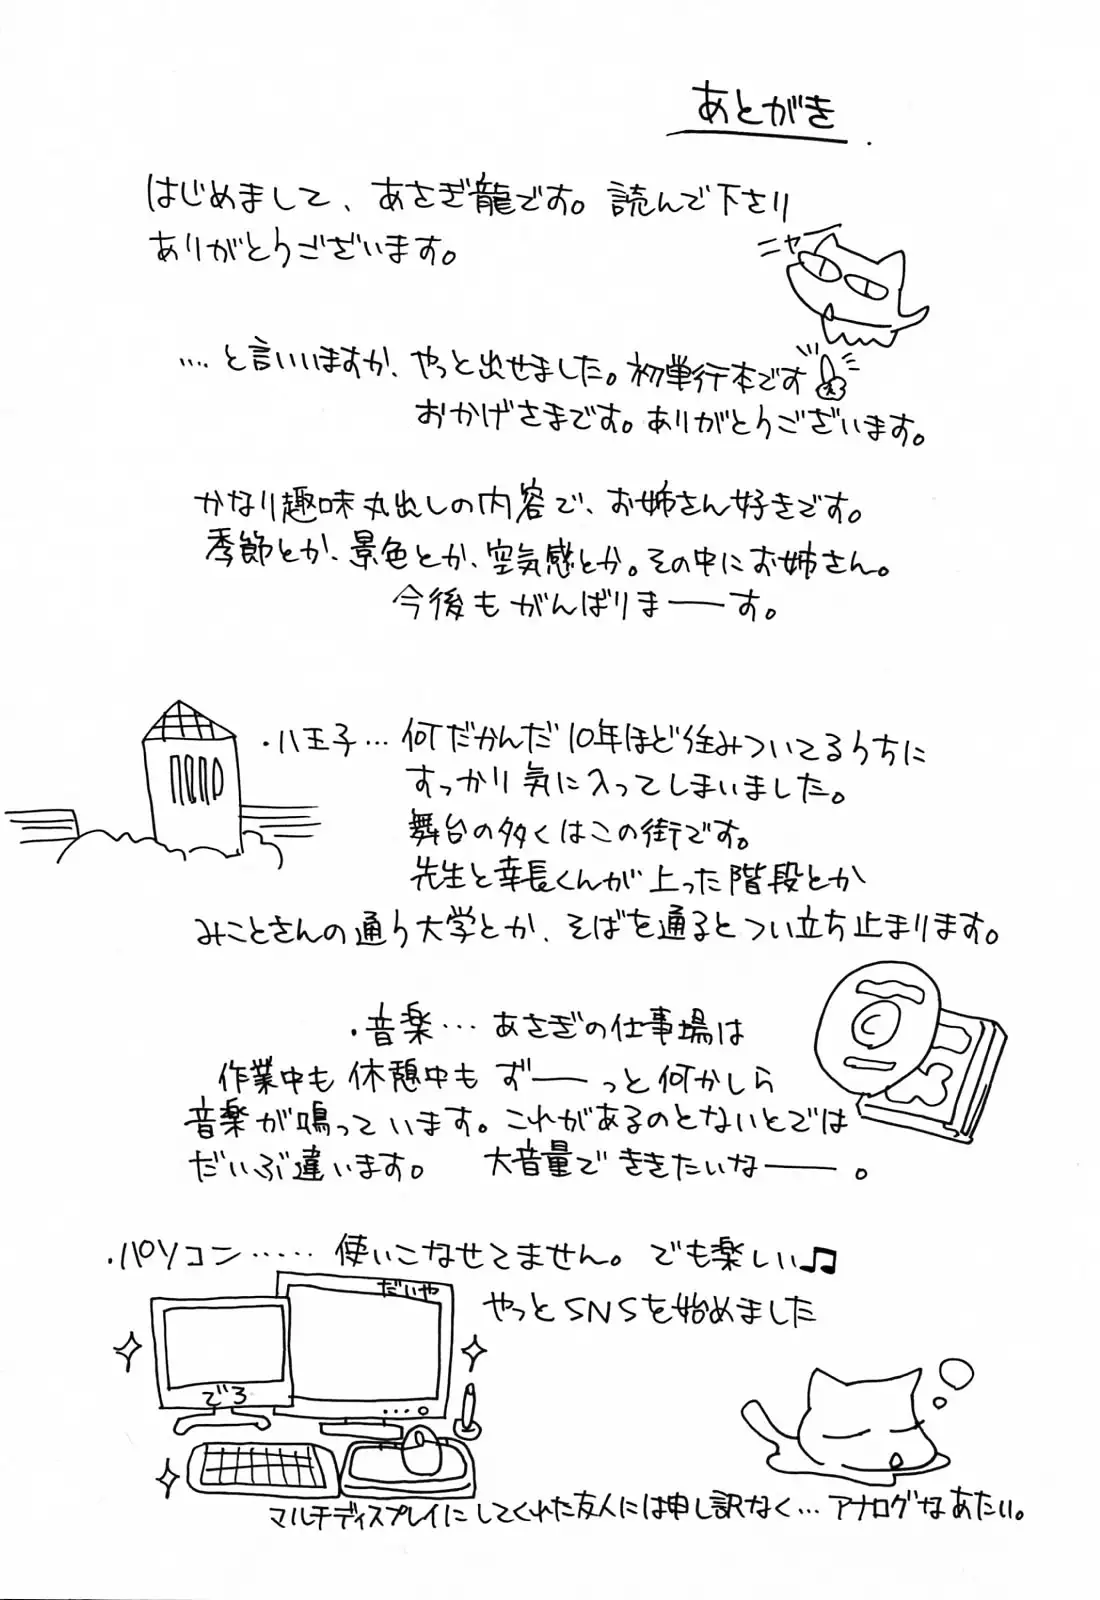 あとがき
はじめまして、あさぎ龍です。読んで下さり
ありがとうございます。
ニャー
…. と言いいますか、やっと出せました。初単行本です
おかげさまです。ありがとうございます。
かなり趣味丸出しの内容で、お姉さん好きです。
季節とか、景色とか、空気感とか。その中にお姉さん。
今後もがんばりまーす。
・八王子… 何だかんだ10年ほど住みついてるうちに
すっかり気に入ってしまいました。
舞台の多くはこの街です。
先生と幸長くんが上った階段とか
みことさんの通う大学とか、そばを通るとつい立ち止まります。
・音楽… あさぎの仕事場は
作業中も休憩中もずーっと何かしら
音楽が鳴っています。これがあるのとないとでは
だいぶ違います。 大音量でききたいなー。
・パソコン…… 使いこなせてません。でも楽しい♫
やっとSNSを始めました
だいや
でろ
マルチディスプレイにしてくれた友人には申し訳なく… アナログなあたい。